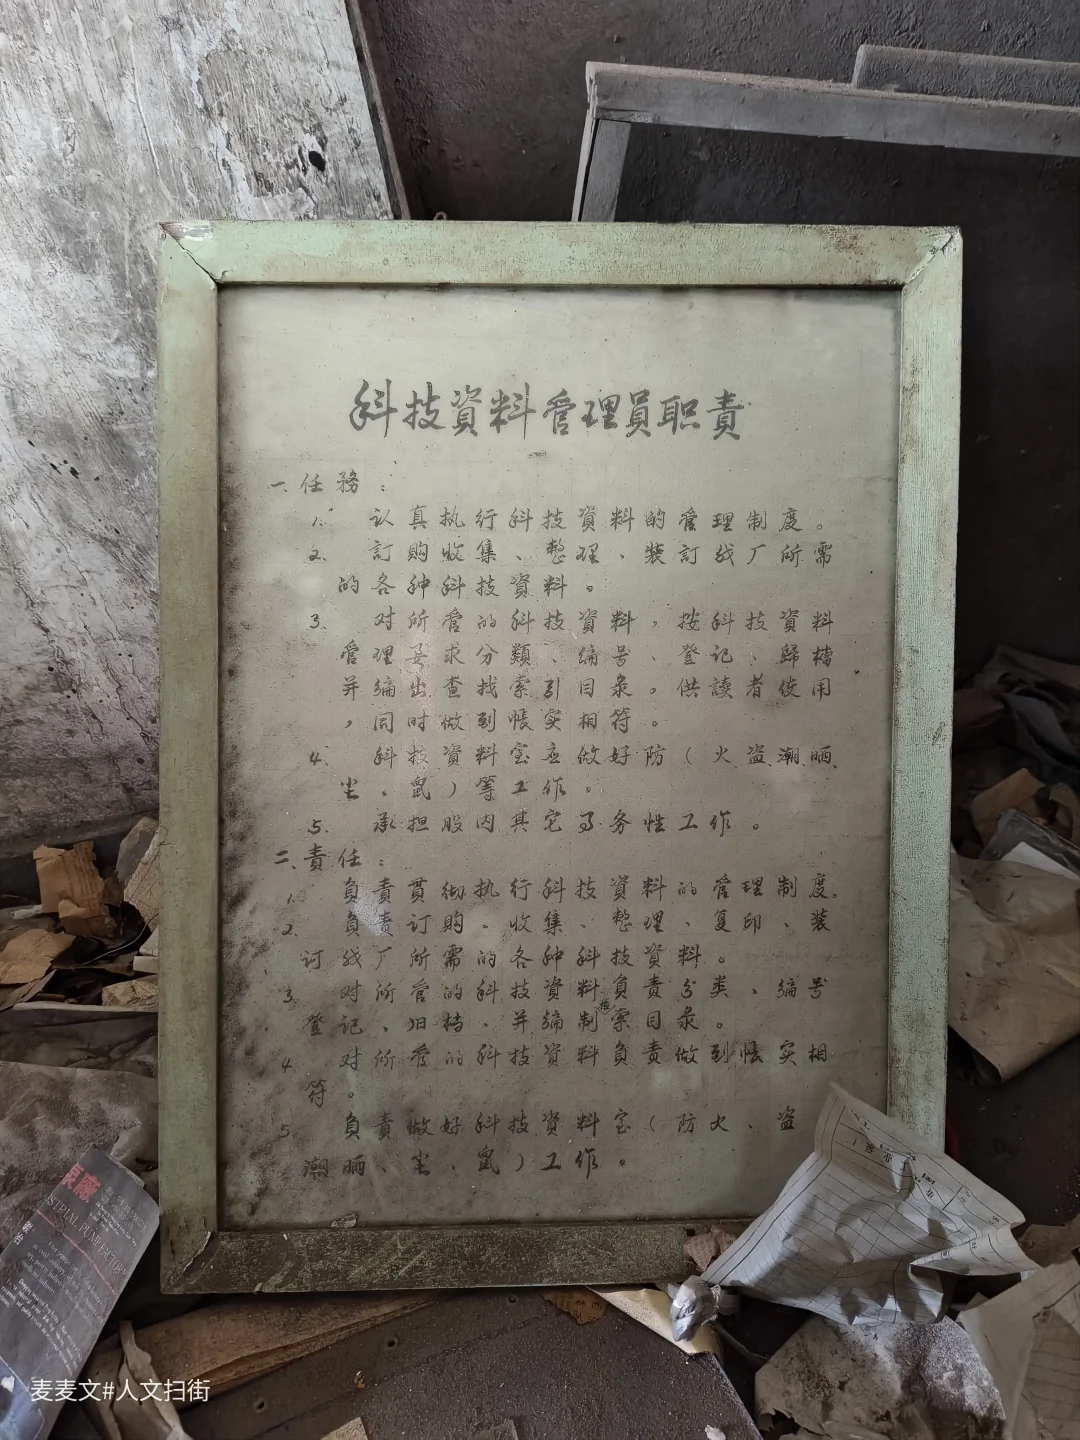 科技資料管理員职責
一、任務：
1. 认真执行科技資料的管理制度。
2. 訂购收集、整理、装訂我厂所需
的各种科技資料。
3、 对所管的科技資料，按科技資料
管理要求分類、编号、登记、歸檔
并编出查找索引目录。供讀者使用
，同时做到帳实相符。
4、 科技資料室应做好防（火盗潮晒、
尘、鼠）等工作。
5、 承担股内其它事务性工作。
二、責任：
1、 負責贯彻执行科技資料的管理制度。
2、 負責订购、收集、整理、复印、装
订我厂所需的各种科技資料。
3、 对所管的科技資料負責分类、编号
登记、旧档、并编制索目录。
4 对所管的科技資料負責做到帳实相
符。
5. 負責做好科技資料室（防火、盗
潮晒、尘、鼠）工作。
麦麦文#人文扫街